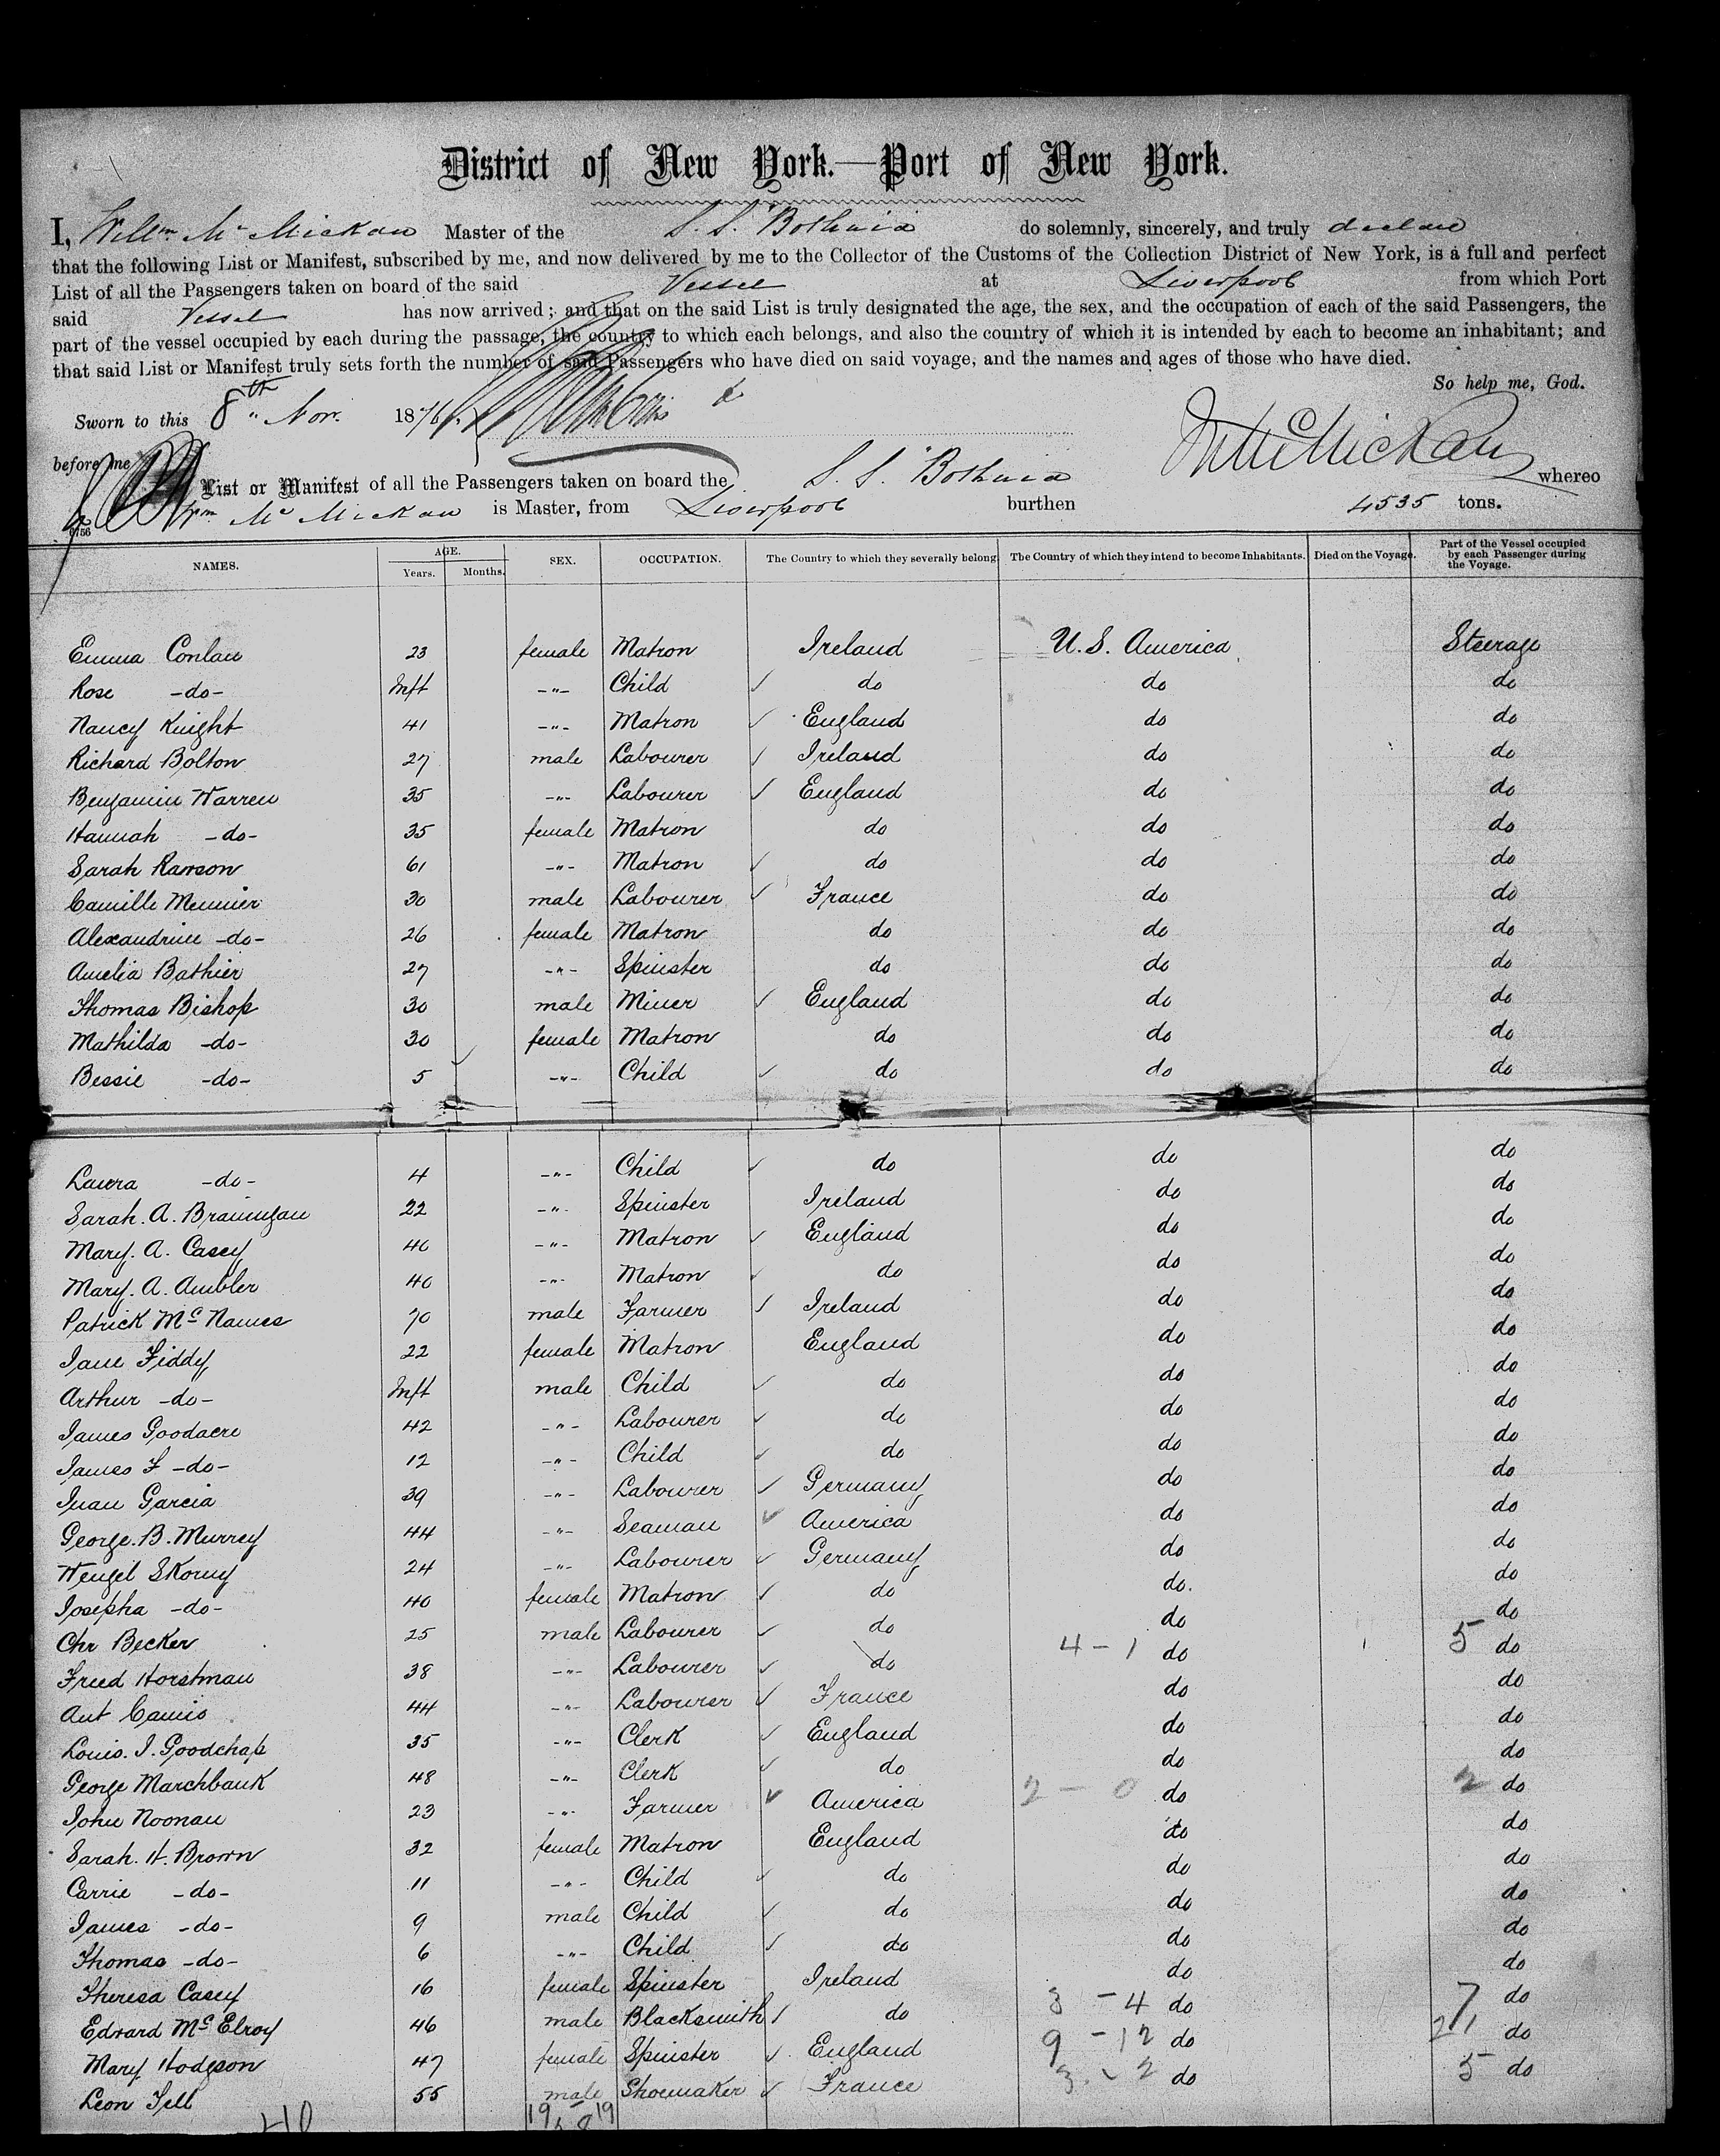 District of New York.—Port of New York.
I, Willm Mc Mickan Master of the S. S. "Bothnia do solemnly, sincerely, and truly declare
that the following List or Manifest, subscribed by me, and now delivered by me to the Collector of the Customs of the Collection District of New York, is a full and perfect
List of all the Passengers taken on board of the said Vessel at Liverpool from which Port
said Vessel has now arrived; and that on the said List is truly designated the age, the sex, and the occupation of each of the said Passengers, the
part of the vessel occupied by each during the passage, the country to which each belongs, and also the country of which it is intended by each to become an inhabitant; and
that said List or Manifest truly sets forth the number of said Passengers who have died on said voyage, and the names and ages of those who have died.
So help me, God.
Sworn to this 8th " Nov. 1876
before me
WMcMickan
List or Manifest of all the Passengers taken on board the S. S. "Bothnia whereo
Wm Mc Mickan is Master, from Liverpool burthen 4535 tons.
6756
NAMES. AGE. Years. Months. SEX. OCCUPATION. The Country to which they severally belong. The Country of which they intend to become Inhabitants. Died on the Voyage. Part of the Vessel occupied by each Passenger during the Voyage.
Emma Conlan 23 female Matron Ireland U. S. America Steerage
Rose -do- Inft -"- Child do do do
Nancy Knight 41 -"- Matron England do do
Richard Bolton 27 male Labourer Ireland do do
Benjamin Warren 35 -"- Labourer England do do
Hannah -do- 35 female Matron do do do
Sarah Rawson 61 -"- Matron do do do
Camille Meunier 30 male Labourer France do do
Alexandrine -do- 26 female Matron do do do
Amelia Bathier 27 -"- Spinster do do do
Thomas Bishop 30 male Miner England do do
Mathilda -do- 30 female Matron do do do
Bessie -do- 5 -"- Child do do do
Laura -do- 4 -"- Child do do do
Sarah. A. Brannigan 22 -"- Spinster Ireland do do
Mary. A. Casey 40 -"- Matron England do do
Mary. A. Ambler 40 -"- Matron do do do
Patrick Mc Names 70 male Farmer Ireland do do
Jane Fiddy 22 female Matron England do do
Arthur -do- Inft male Child do do do
James Goodacre 42 -"- Labourer do do do
James F -do- 12 -"- Child do do do
Juan Garcia 39 -"- Labourer Germany do do
George. B. Murrey 44 -"- Seaman America do do
Wenzil Skorny 24 -"- Labourer Germany do do
Josepha -do- 40 female Matron do do. do
Chr Becker 25 male Labourer do do do
Freed Horstman 38 -"- Labourer do 4 - 1 do 5 do
Ant Camis 44 -"- Labourer France do do
Louis. J. Goodchap 35 -"- Clerk England do do
George Marchbank 48 -"- Clerk do do do
John Noonan 23 -"- Farmer America 2 - 0 do 2 do
Sarah. H. Brown 32 female Matron England do do
Carrie -do- 11 -"- Child do do do
James -do- 9 male Child do do do
Thomas -do- 6 -"- Child do do do
Theresa Casey 16 female Spinster Ireland do do
Edward Mc Elroy 46 male Blacksmith do 3 - 4 do 7 do
Mary Hodgson 47 female Spinster England 9 - 12 do 21 do
Leon Tell 55 male Shoemaker France 3 - 2 do 5 do
40 19 19